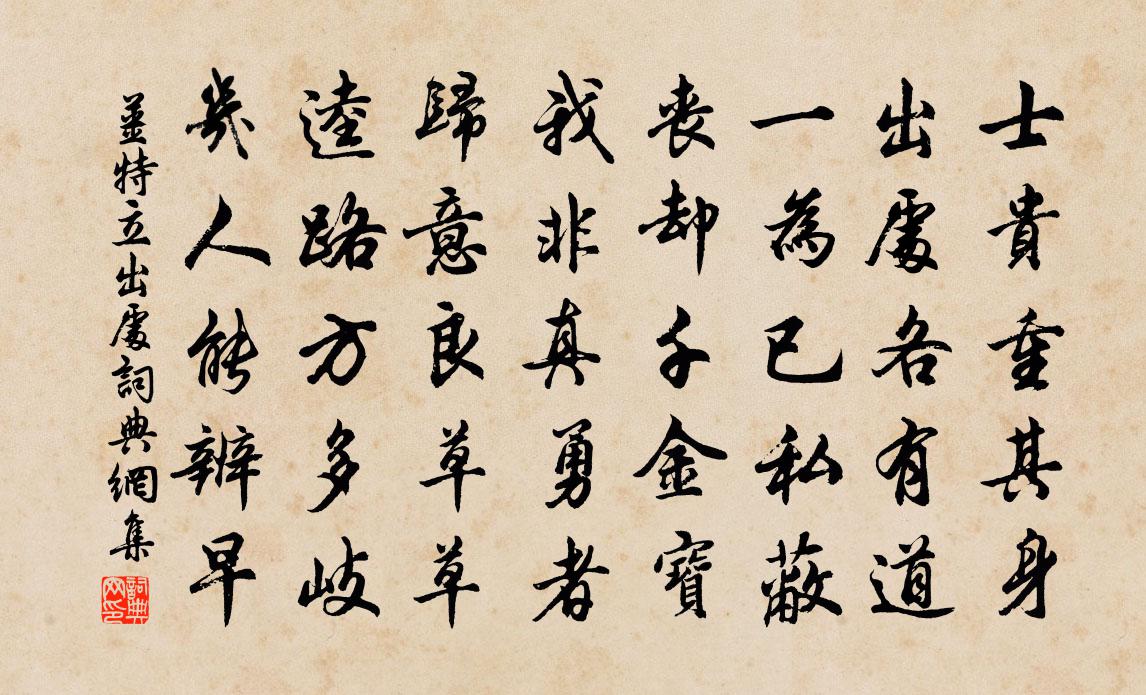 士貴重其身
出處各有道
一為已私蔽
喪却千金寶
我非真勇者
歸意良草草
逵路方多岐
幾人能辨早
姜特立出處詞典網集
詞典網印